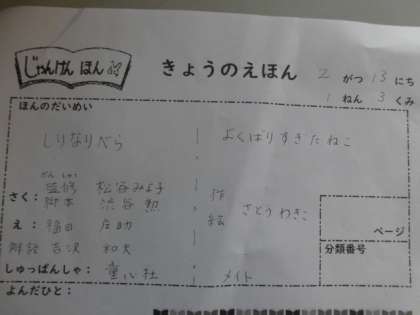 じゃんけん ほん
きょうのえほん 2 がつ 13 にち
1 ねん 3 くみ
ほんのだいめい
しりなりべら よくばりすぎたねこ
かんしゅう
監修 松谷みよ子
さく: 脚本 渋谷 勲 作
え: 福田 庄助 絵 さとう わきこ
解説 吉沢 和夫
しゅっぱんしゃ: 童心社 メイト
よんだひと:
ページ
分類番号